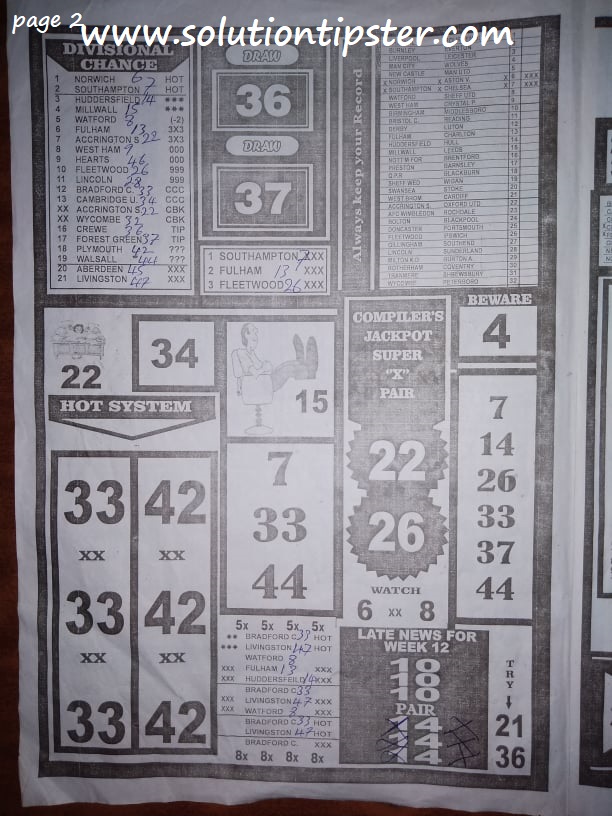 page 2 www.solutiontipster.com
DIVISIONAL CHANCE
1 NORWICH 6 HOT
2 SOUTHAMPTON 7 HOT
3 HUDDERSFIELD 14 ***
4 MILLWALL 15 ***
5 WATFORD 8 (-2)
6 FULHAM 13 3X3
7 ACCRINGTON S 22 3X3
8 WEST HAM 9 000
9 HEARTS 46 000
10 FLEETWOOD 26 999
11 LINCOLN 28 999
12 BRADFORD C. 33 CCC
13 CAMBRIDGE U. 34 CCC
XX ACCRINGTON S 22 CBK
XX WYCOMBE 32 CBK
16 CREWE 36 TIP
17 FOREST GREEN 37 TIP
18 PLYMOUTH 42 ???
19 WALSALL 44 ???
20 ABERDEEN 45 XXX
21 LIVINGSTON 47 XXX
DRAW
36
DRAW
37
1 SOUTHAMPTON 7 XXX
2 FULHAM 13 XXX
3 FLEETWOOD 26 XXX
Always keep your Record
BURNLEY EVERTON 3
LIVERPOOL LEICESTER 4
MAN CITY WOLVES 5
NEW CASTLE MAN UTD
X NORWICH X ASTON V. X 6 XXX
X SOUTHAMPTON X CHELSEA X 7 XXX
WATFORD SHEFF UTD 8
WEST HAM CRYSTAL P. 9
BIRMINGHAM MIDDLESBORO 10
BRISTOL C. READING 11
DERBY LUTON 12
FULHAM CHARLTON 13
HUDDERSFIELD HULL 14
MILLWALL LEEDS 15
NOTT'M FOR BRENTFORD 16
PRESTON BARNSLEY 17
Q.P.R BLACKBURN 18
SHEFF WED WIGAN 19
SWANSEA STOKE 20
WEST BROM CARDIFF 21
ACCRINGTON S. OXFORD UTD 22
AFC WIMBLEDON ROCHDALE 23
BOLTON BLACKPOOL 24
DONCASTER PORTSMOUTH 25
FLEETWOOD IPSWICH 26
GILLINGHAM SOUTHEND 27
LINCOLN SUNDERLAND 28
MILTON K.D BURTON A. 29
ROTHERHAM COVENTRY 30
TRANMERE SHREWSBURY 31
WYCOMBE PETERBORO 32
22
34
15
HOT SYSTEM
33 42
XX XX
33 42
XX XX
33 42
7
33
44
COMPILER'S
JACKPOT
SUPER
"X"
PAIR
22
26
WATCH
6 XX 8
BEWARE
4
7
14
26
33
37
44
5x 5x 5x 5x
** BRADFORD C. 33 HOT
*** LIVINGSTON 47 HOT
WATFORD 8
XXX FULHAM 13 XXX
XXX HUDDERSFEILD 14 XXX
BRADFORD C 33
XXX LIVINGSTON 47 XXX
XXX WATFORD 8 XXX
BRADFORD C 33 HOT
LIVINGSTON 47 HOT
BRADFORD C. XXX
8x 8x 8x 8x
LATE NEWS FOR
WEEK 12
18
18
18
PAIR
14
14
14
TRY
21
36